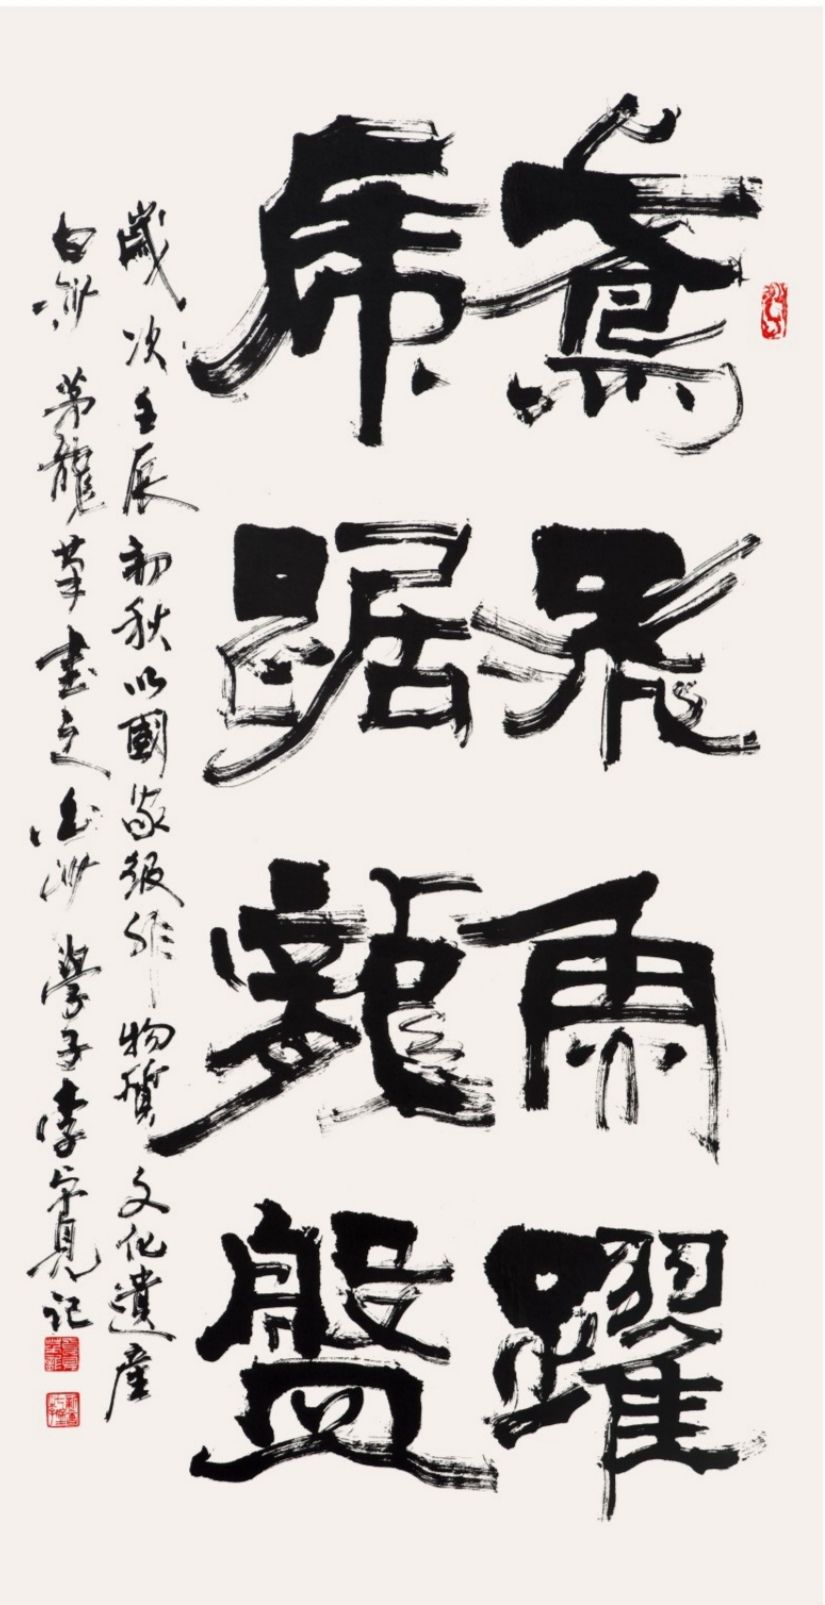 鳶飛魚躍
虎踞龍盤
歲次壬辰初秋以國家級非物質文化遺產
白沙茅龍筆書之白沙學子李宗見記